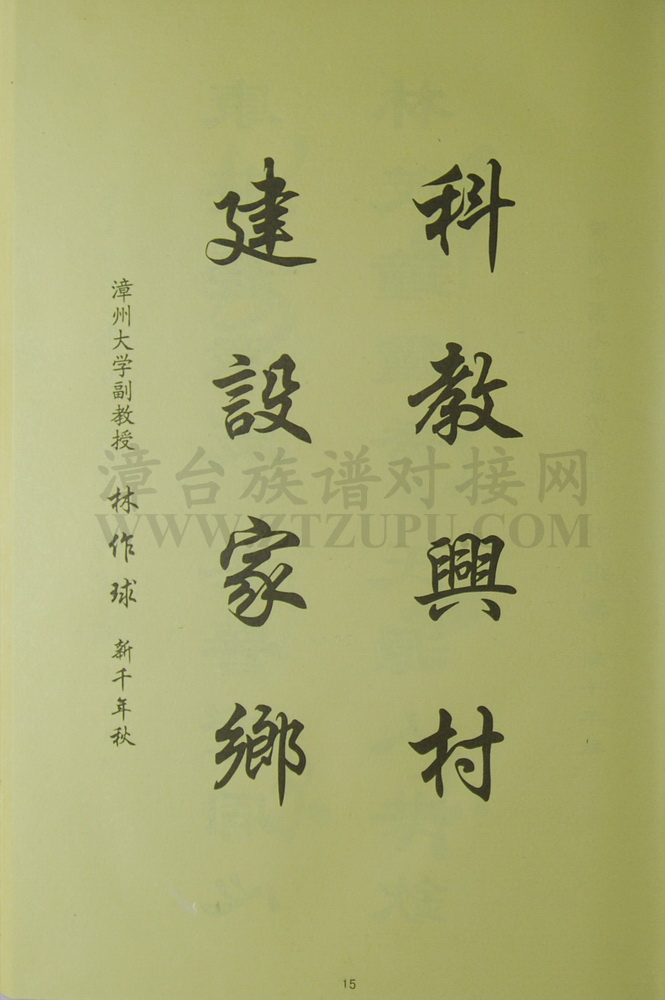 科教興村
建設家鄉
漳州大学副教授 林作球 新千年秋
漳台族谱对接网
WWW.ZTZUPU.COM
15